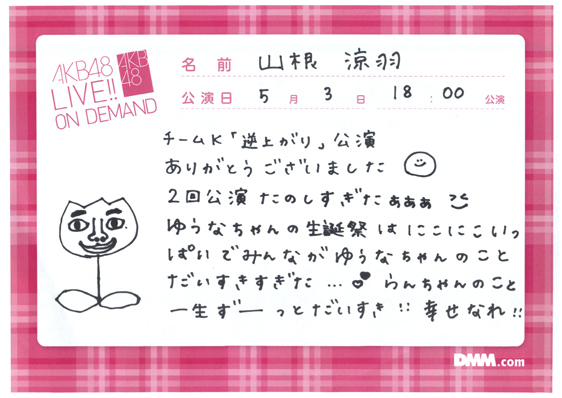 AKB48
LIVE!!
ON DEMAND
AKB
48
名前 山根 涼羽
公演日 5月3日 18:00公演
チームK「逆上がり」公演
ありがとうございました
2回公演 たのしすぎたぁぁぁ
ゆうなちゃんの生誕祭はにこにこいっ
ぱいでみんながゆうなちゃんのこと
だいすきすぎた…らんちゃんのこと
一生ずーっとだいすき!!幸せなれ!!
DMM.com